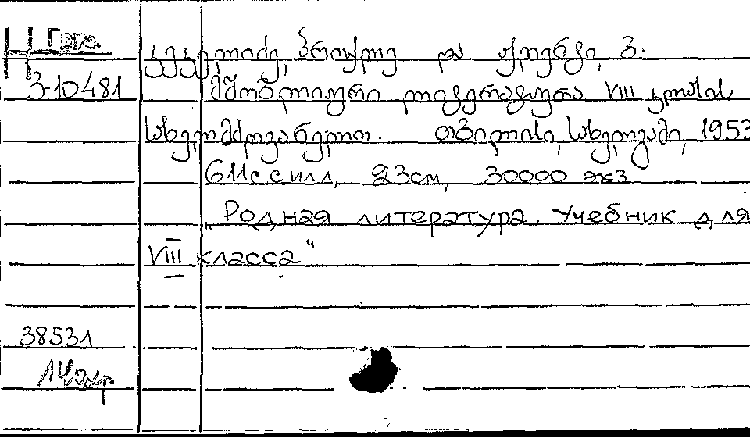 Груз.
კეკელიძე, პროკლე და ჟღენტი, ვ.
3-10481 მშობლიური ლიტერატურა VIII კლასის
სახელმძღვანელო. თბილისი, სახელგამი, 1953
611с с илл, 23см, 30000 экз
„Родная литература. Учебник для
VIII класса"
38531